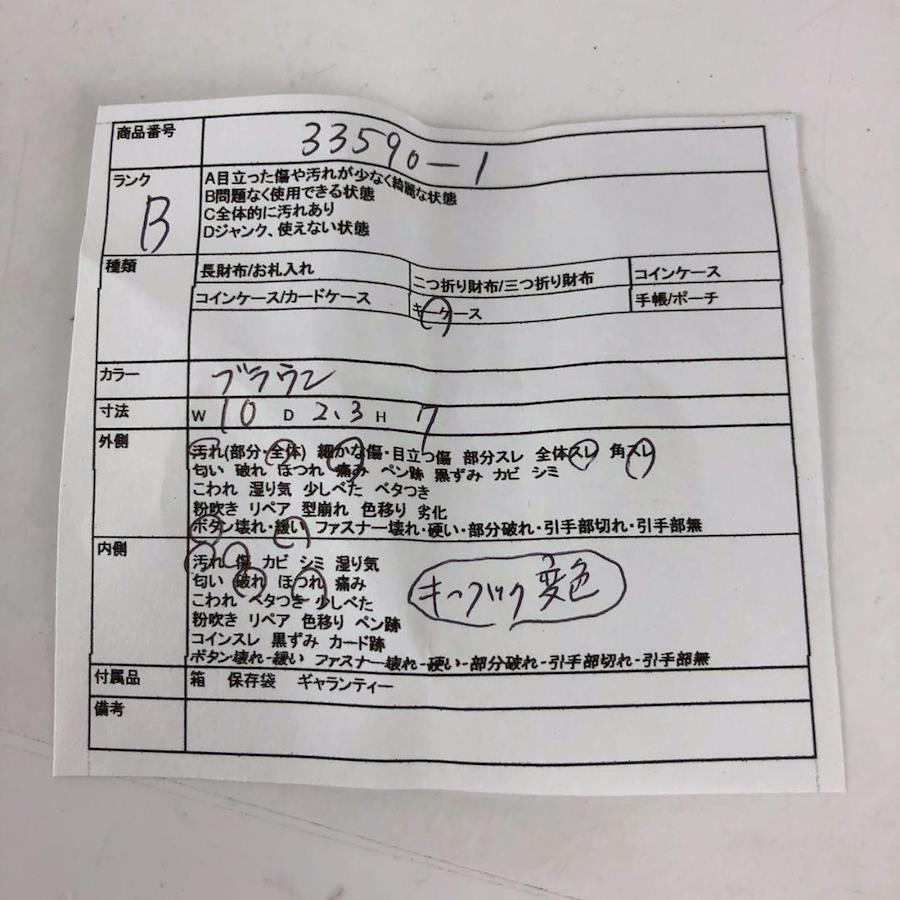 商品番号 33590-1
ランク B
A目立った傷や汚れが少なく綺麗な状態
B問題なく使用できる状態
C全体的に汚れあり
Dジャンク、使えない状態
種類 長財布/お札入れ 二つ折り財布/三つ折り財布 コインケース
コインケース/カードケース キーケース 手帳/ポーチ
カラー ブラウン
寸法 W 10 D 2.3 H 7
外側 汚れ(部分・全体) 細かな傷・目立つ傷 部分スレ 全体スレ 角スレ
匂い 破れ ほつれ 痛み ペン跡 黒ずみ カビ シミ
こわれ 湿り気 少しべた ベタつき
粉吹き リペア 型崩れ 色移り 劣化
ボタン壊れ・緩い ファスナー壊れ・硬い・部分破れ・引手部切れ・引手部無
内側 汚れ 傷 カビ シミ 湿り気
匂い 破れ ほつれ 痛み
こわれ ベタつき 少しべた
キーフック変色
粉吹き リペア 色移り ペン跡
コインスレ 黒ずみ カード跡
ボタン壊れ-緩い ファスナー壊れ-硬い-部分破れ-引手部切れ-引手部無
付属品 箱 保存袋 ギャランティー
備考